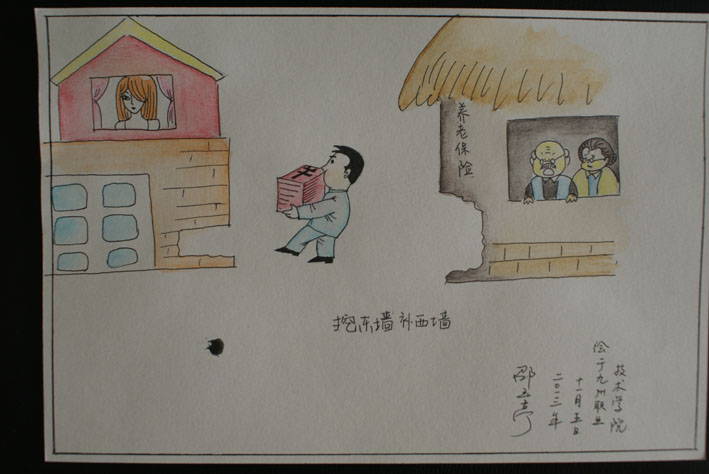 养老保险
挖东墙补西墙
二〇一三年
十一月五日
绘于九州职业
技术学院